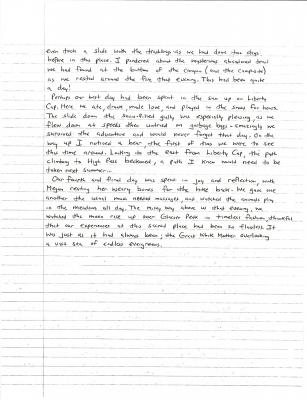 even took a slide with the trekkings as we had done two days
before in this place. I pondered about the mysterious abandoned bowl
we had found at the bottom of the canyon (and the campsite)
as we rested around the fire that evening. This had been quite
a day!
Perhaps our best day had been spent in the sun up on Liberty
Cap. Here we ate, drank, made love, and played in the snow for hours.
The slide down the snow-filled gully was especially pleasing, as we
flew down at speeds often untried on garbage bags - amazingly we
survived the adventure and would never forget that day. On the
way up I noticed a bear, the first of two we were to see
this time around. Looking to the east from Liberty Cap, the path
climbing to High Pass beckoned, a path I knew would need to be
taken next summer...
Our fourth and final day was spent in joy and reflection with
Megan resting her weary bones for the hike back. We gave one
another the usual much needed massages, and watched the animals play
in the meadows all day. The milky way above us that evening, we
watched the moon rise up over Glacier Peak in timeless fashion, thankful
that our experiences at this sacred place had been so flawless. It
was just as it had always been; the Great White Mother overlooking
a vast sea of endless evergreens.